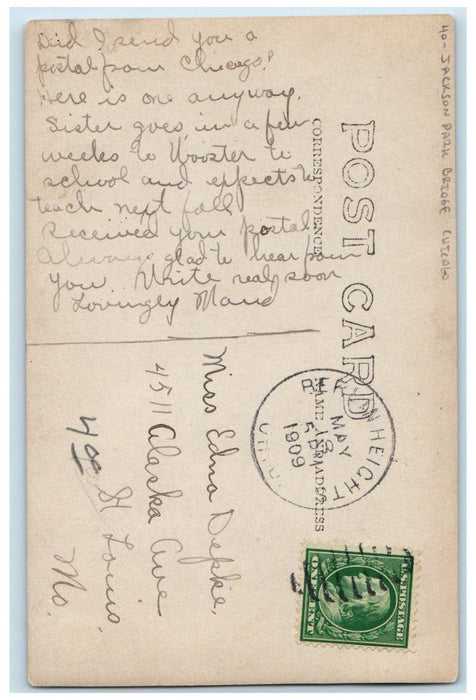 Did I send you a
postal from Chicago?
Here is one anyway.
Sister goes in a few
weeks to Wooster to
school and expects to
teach next fall
Received your postal
Always glad to hear from
you. Write real soon
Lovingly Maud
POST CARD
CORRESPONDENCE
NAME AND ADDRESS
40- JACKSON PARK BRIDGE CHICAGO
HEIGHT
MAY
18
1909
OHIO.
Miss Edna Depke,
4511 Alaska Ave
St Louis,
Mo.
U.S. POSTAGE
ONE CENT